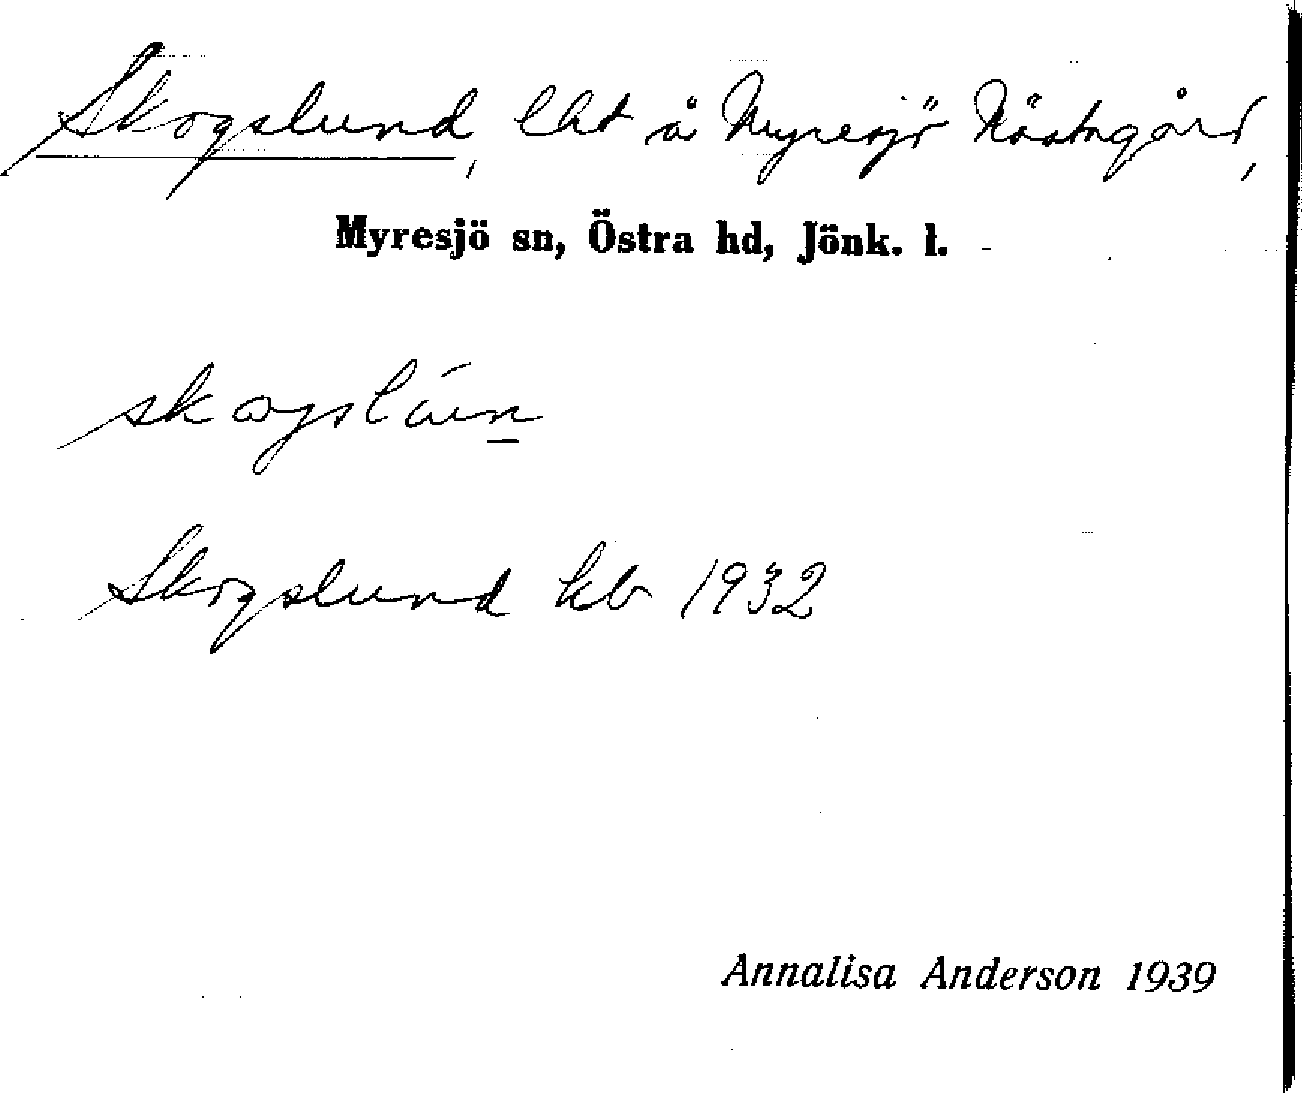 Skogslund, lht å Myresjö Nästagård,
Myresjö sn, Östra hd, Jönk. l.
Skogslund kb 1932
Annalisa Anderson 1939